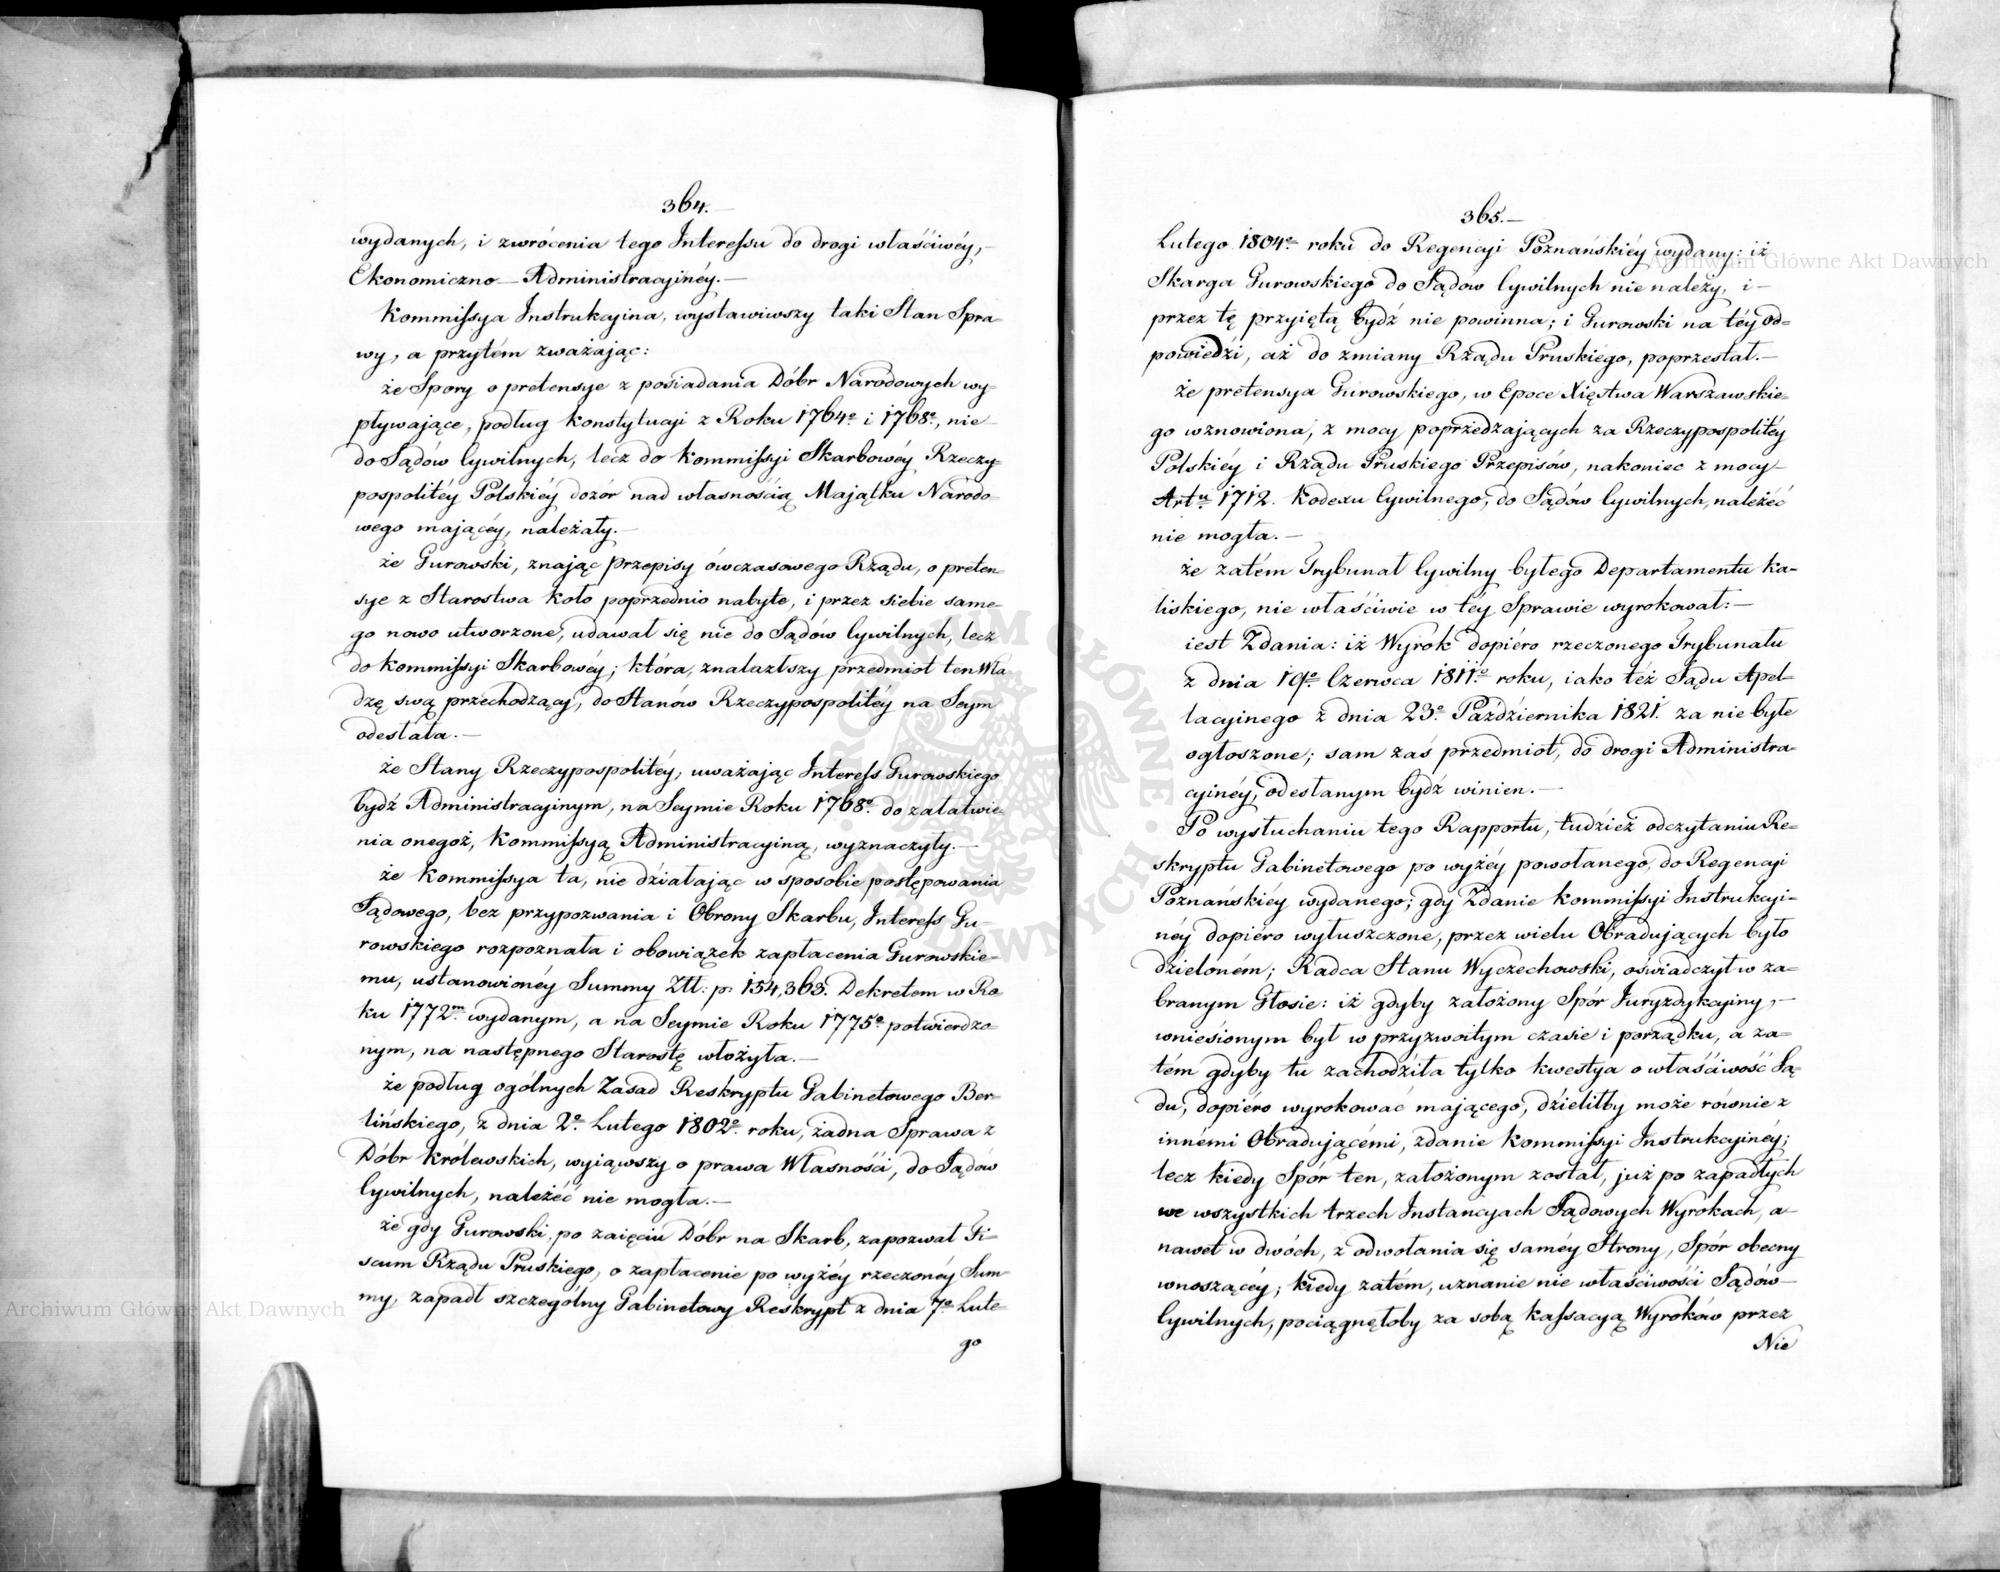 364.—
wydanych, i zwrócenia tego Interessu do drogi właściwéy,—
Ekonomiczno—Administracyinéy.—
Kommissya Instrukcyina, wystawiwszy taki Stan Spra-
wy, a przytém zważając:
że Spory o pretensye z posiadania Dóbr Narodowych wy-
pływające, podług Konstytucyi z Roku 1764º i 1768º, nie
do Sądów Cywilnych, lecz do Kommissyi Skarbowéy Rzeczy-
pospolitéy Polskiéy dozór nad własnością Maiątku Narodo-
wego maiącéy, należały.—
że Gurowski, znając przepisy ówczasowego Rządu, o preten-
sye z Starostwa Koło poprzednio nabyte, i przez siebie same-
go nowo utworzone, udawał się nie do Sądów Cywilnych, lecz
do Kommissyi Skarbowéy; która, znalazłszy przedmiot ten Wła-
dzę swą przechodzący, do Stanów Rzeczypospolitéy na Seym
odesłała.—
że Stany Rzeczypospolitéy, uważając Interess Gurowskiego
bydź Administracyinym, na Seymie Roku 1768º do załatwie-
nia onegoż, Kommissyą Administracyiną, wyznaczyły.—
że Kommissya ta, nie działając w sposobie postępowania
Sądowego, bez przypozwania i Obrony Skarbu, Interess Gu-
rowskiego rozpoznała i obowiązek zapłacenia Gurowskie-
mu, ustanowionéy Summy Złł: p: 154,363. Dekretem w Ro-
ku 1772m wydanym, a na Seymie Roku 1775º potwierdzo-
nym, na następnego Starostę włożyła.—
że podług ogólnych Zasad Reskryptu Gabinetowego Ber-
lińskiego, z dnia 2º Lutego 1802º roku, żadna Sprawa z
Dóbr Królewskich, wyiąwszy o prawa Własności, do Sądów
Cywilnych, należéć nie mogła.—
że gdy Gurowski, po zaięciu Dóbr na Skarb, zapozwał Fi-
scum Rządu Pruskiego, o zapłacenie po wyżéy rzeczonéy Sum-
my, zapadł szczególny Gabinetowy Reskrypt z dnia 7º Lute-
go
365.—
Lutego 1804º roku do Regencyi Poznańskiéy wydany: iż
Skarga Gurowskiego do Sądów Cywilnych nie należy, i—
przez tę przyiętą bydź nie powinna; i Gurowski na téy od-
powiedzi, aż do zmiany Rządu Pruskiego, poprzestał.—
że pretensya Gurowskiego, w Epoce Xięstwa Warszawskie-
go wznowiona, z mocy poprzedzających za Rzeczypospolitéy
Polskiéy i Rządu Pruskiego Przepisów, nakoniec z mocy—
Artu 1712. Kodexu Cywilnego, do Sądów Cywilnych, należéć
nie mogła.—
że zatém Trybunał Cywilny byłego Departamentu Ka-
liskiego, nie właściwie w tey Sprawie wyrokował:—
iest Zdania: iż Wyrok dopiéro rzeczonego Trybunału
z dnia 19º Czerwca 1811º roku, iako też Sądu Apel-
lacyinego z dnia 23º Października 1821. za nie byłe
ogłoszone; sam zaś przedmiot, do drogi Administra-
cyinéy, odesłanym bydź winien.—
Po wysłuchaniu tego Rapportu, tudzież odczytaniu Re-
skryptu Gabinetowego po wyżéy powołanego, do Regencyi
Poznańskiéy wydanego; gdy Zdanie Kommissyi Instrukcyi-
néy dopiéro wyłuszczone, przez wielu Obradujących było
dzieloném; Radca Stanu Wyczechowski, oświadczył w za-
branym Głosie: iż gdyby założony Spór Juryzdykcyiny,—
wniesionym był w przyzwoitym czasie i porządku, a za-
tém gdyby tu zachodziła tylko kwestya o właściwość Są-
du, dopiéro wyrokować maiącego, dzieliłby może równie z
innémi Obradującémi, zdanie Kommissyi Instrukcyiney;
lecz kiedy Spór ten, założonym został, już po zapadłych
we wszystkich trzech Instancyach Sądowych Wyrokach, a—
nawet w dwóch, z odwołania się saméy Strony, Spór obecny
wnoszącéy; kiedy zatém, uznanie nie właściwości Sądów—
Cywilnych, pociągnęłoby za sobą kassacyą Wyroków przez
Nie
Archiwum Główne Akt Dawnych
Archiwum Główne Akt Dawnych
ARCHIWUM GŁÓWNE · AKT DAWNYCH ·